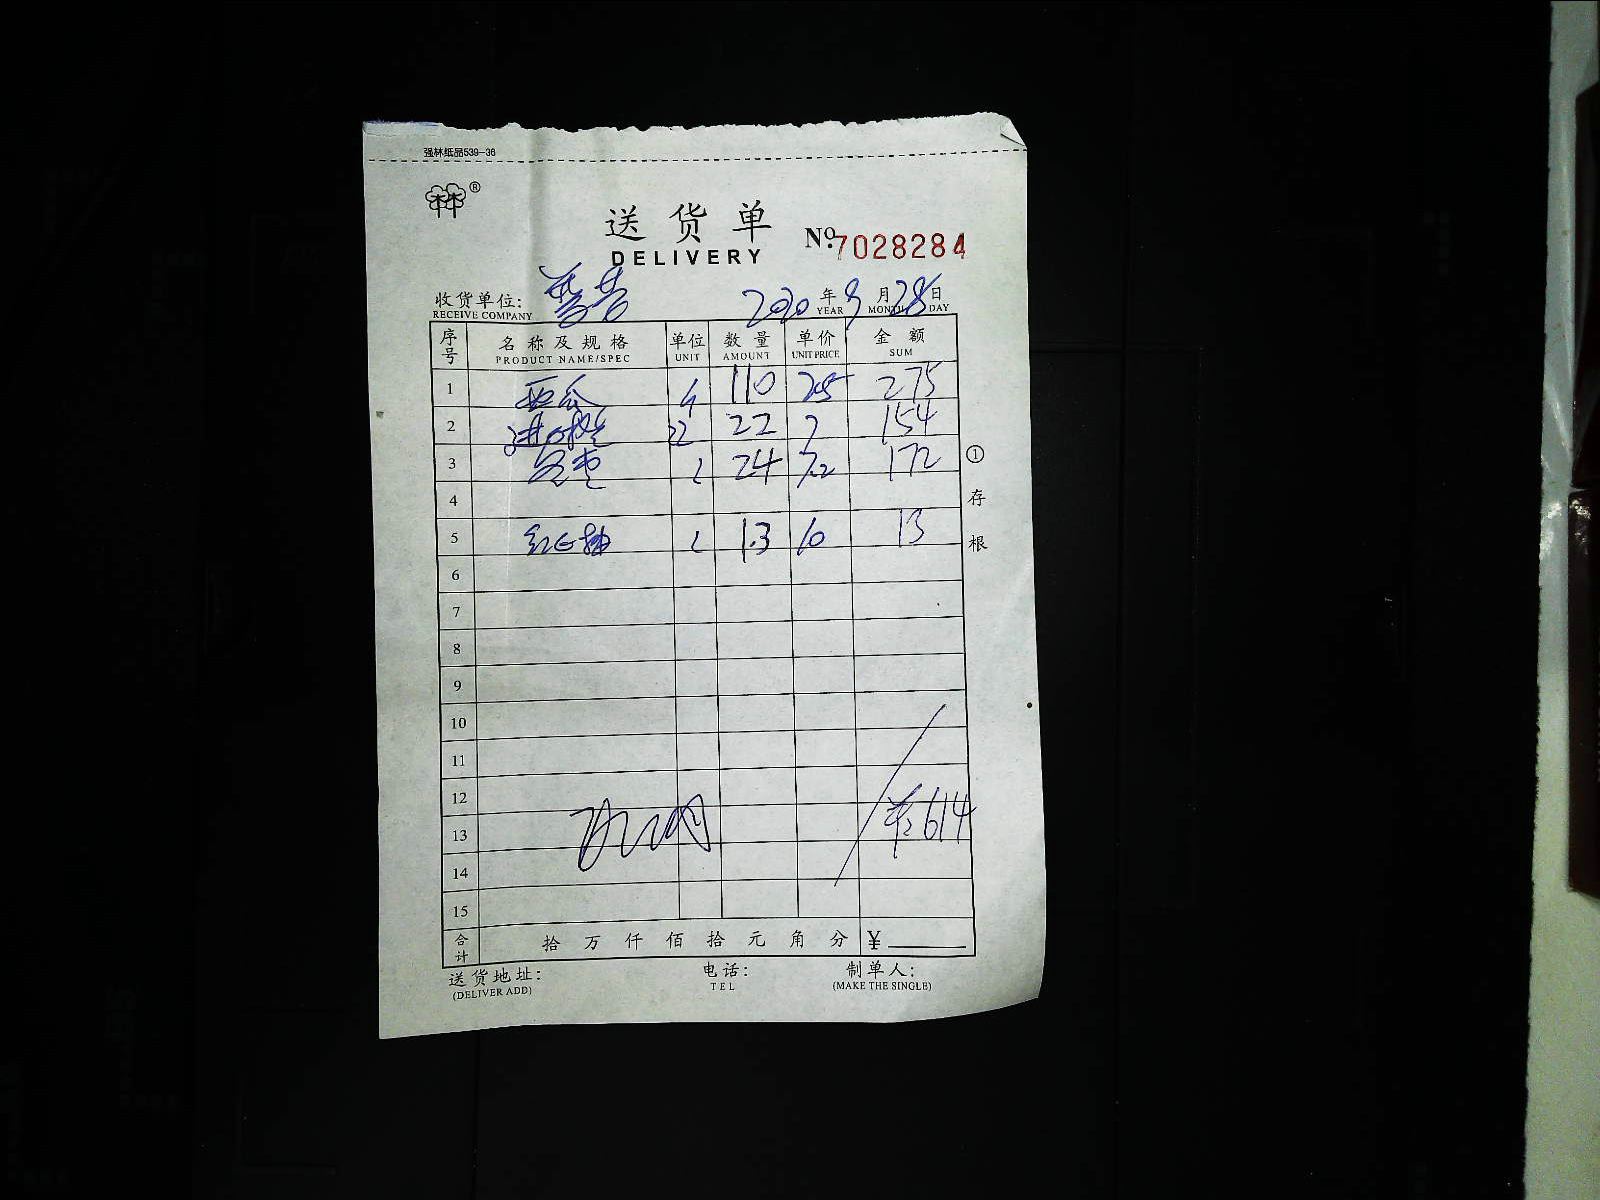 强林纸品539-36
林®
送货单
DELIVERY
№ 7028284
收货单位: 2020年9月28日
RECEIVE COMPANY YEAR MONTH DAY
序号 名称及规格 单位 数量 单价 金额
PRODUCT NAME/SPEC UNIT AMOUNT UNIT PRICE SUM
1 西瓜 110 2.5 275
2 22 7 154
3 冬枣 24 7.2 172
4
5 红心柚 1.3 10 13
6
7
8
9
10
11
12
13 614
14
15
合计 拾 万 仟 佰 拾 元 角 分 ¥
送货地址: 电话: 制单人:
(DELIVER ADD) TEL (MAKE THE SINGLE)
①存根